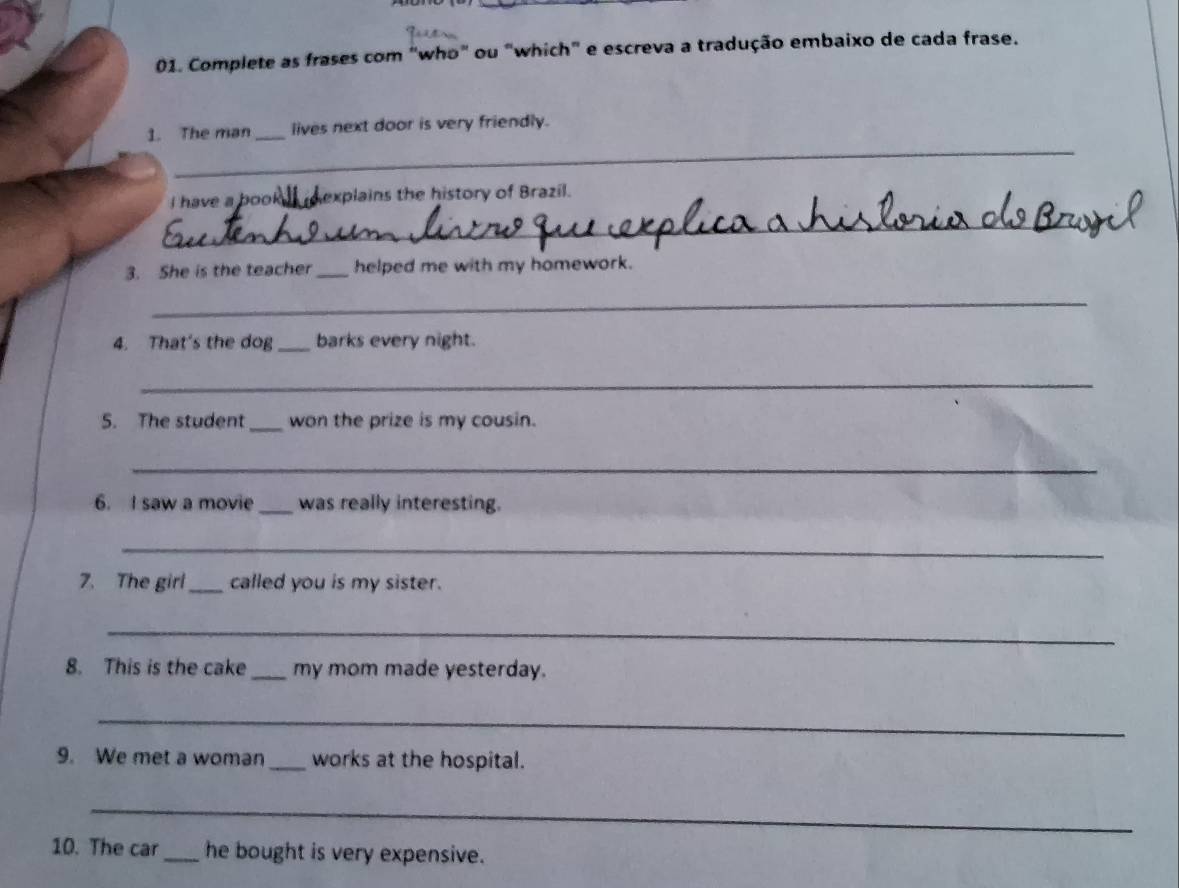 Quem
01. Complete as frases com "who" ou "which" e escreva a tradução embaixo de cada frase.
1. The man ____ lives next door is very friendly.
I have a book explains the history of Brazil.
Eu tenho um livro que explica a historia do Brasil
3. She is the teacher ____ helped me with my homework.
4. That's the dog ____ barks every night.
5. The student ____ won the prize is my cousin.
6. I saw a movie ____ was really interesting.
7. The girl ____ called you is my sister.
8. This is the cake ____ my mom made yesterday.
9. We met a woman ____ works at the hospital.
10. The car ____ he bought is very expensive.